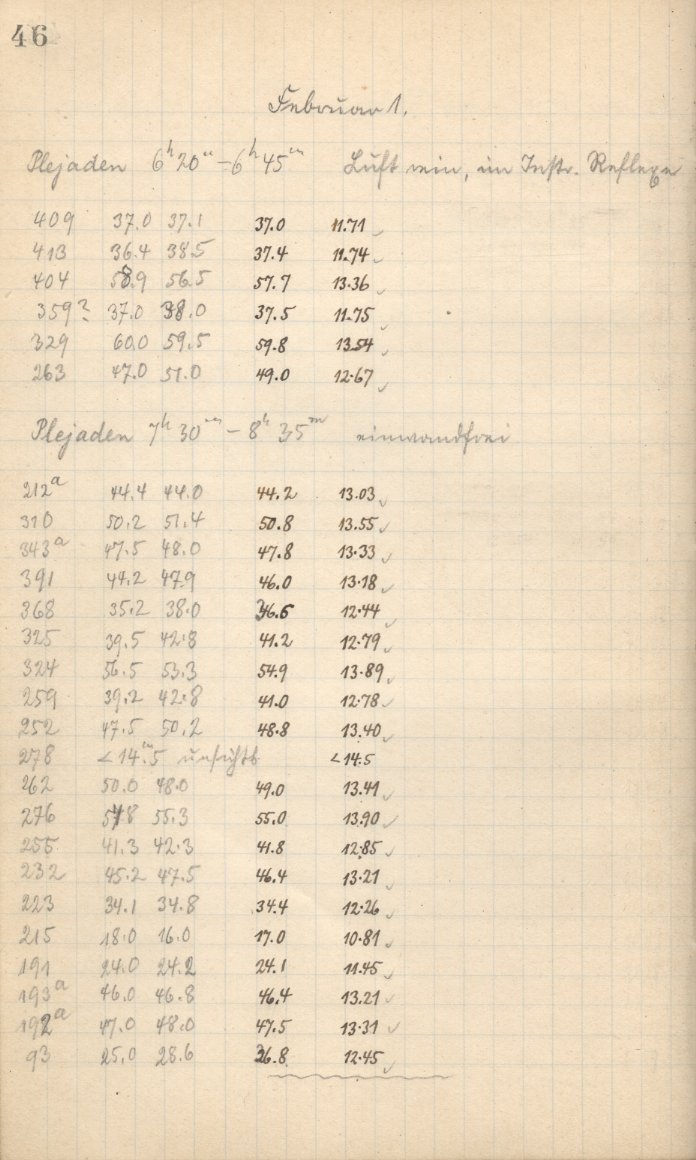 46
Februar 1.
Plejaden 6h 20m – 6h 45m Luft rein, im Instr. Reflexe
409 37.0 37.1 37.0 11.71
413 36.4 38.5 37.4 11.74
404 58.9 56.5 57.7 13.36
359? 37.0 38.0 37.5 11.75
329 60.0 59.5 59.8 13.54
263 47.0 51.0 49.0 12.67
Plejaden 7h 30m – 8h 35m einwandfrei
212a 44.4 44.0 44.2 13.03
310 50.2 51.4 50.8 13.55
343a 47.5 48.0 47.8 13.33
391 44.2 47.9 46.0 13.18
368 35.2 38.0 36.6 12.44
325 39.5 42.8 41.2 12.79
324 56.5 53.3 54.9 13.89
259 39.2 42.8 41.0 12.78
252 47.5 50.2 48.8 13.40
278 < 14m.5 unsichtb < 14.5
262 50.0 48.0 49.0 13.41
276 54.8 55.3 55.0 13.90
255 41.3 42.3 41.8 12.85
232 45.2 47.5 46.4 13.21
223 34.1 34.8 34.4 12.26
215 18.0 16.0 17.0 10.81
191 24.0 24.2 24.1 11.45
193a 46.0 46.8 46.4 13.21
192a 47.0 48.0 47.5 13.31
93 25.0 28.6 26.8 12.45